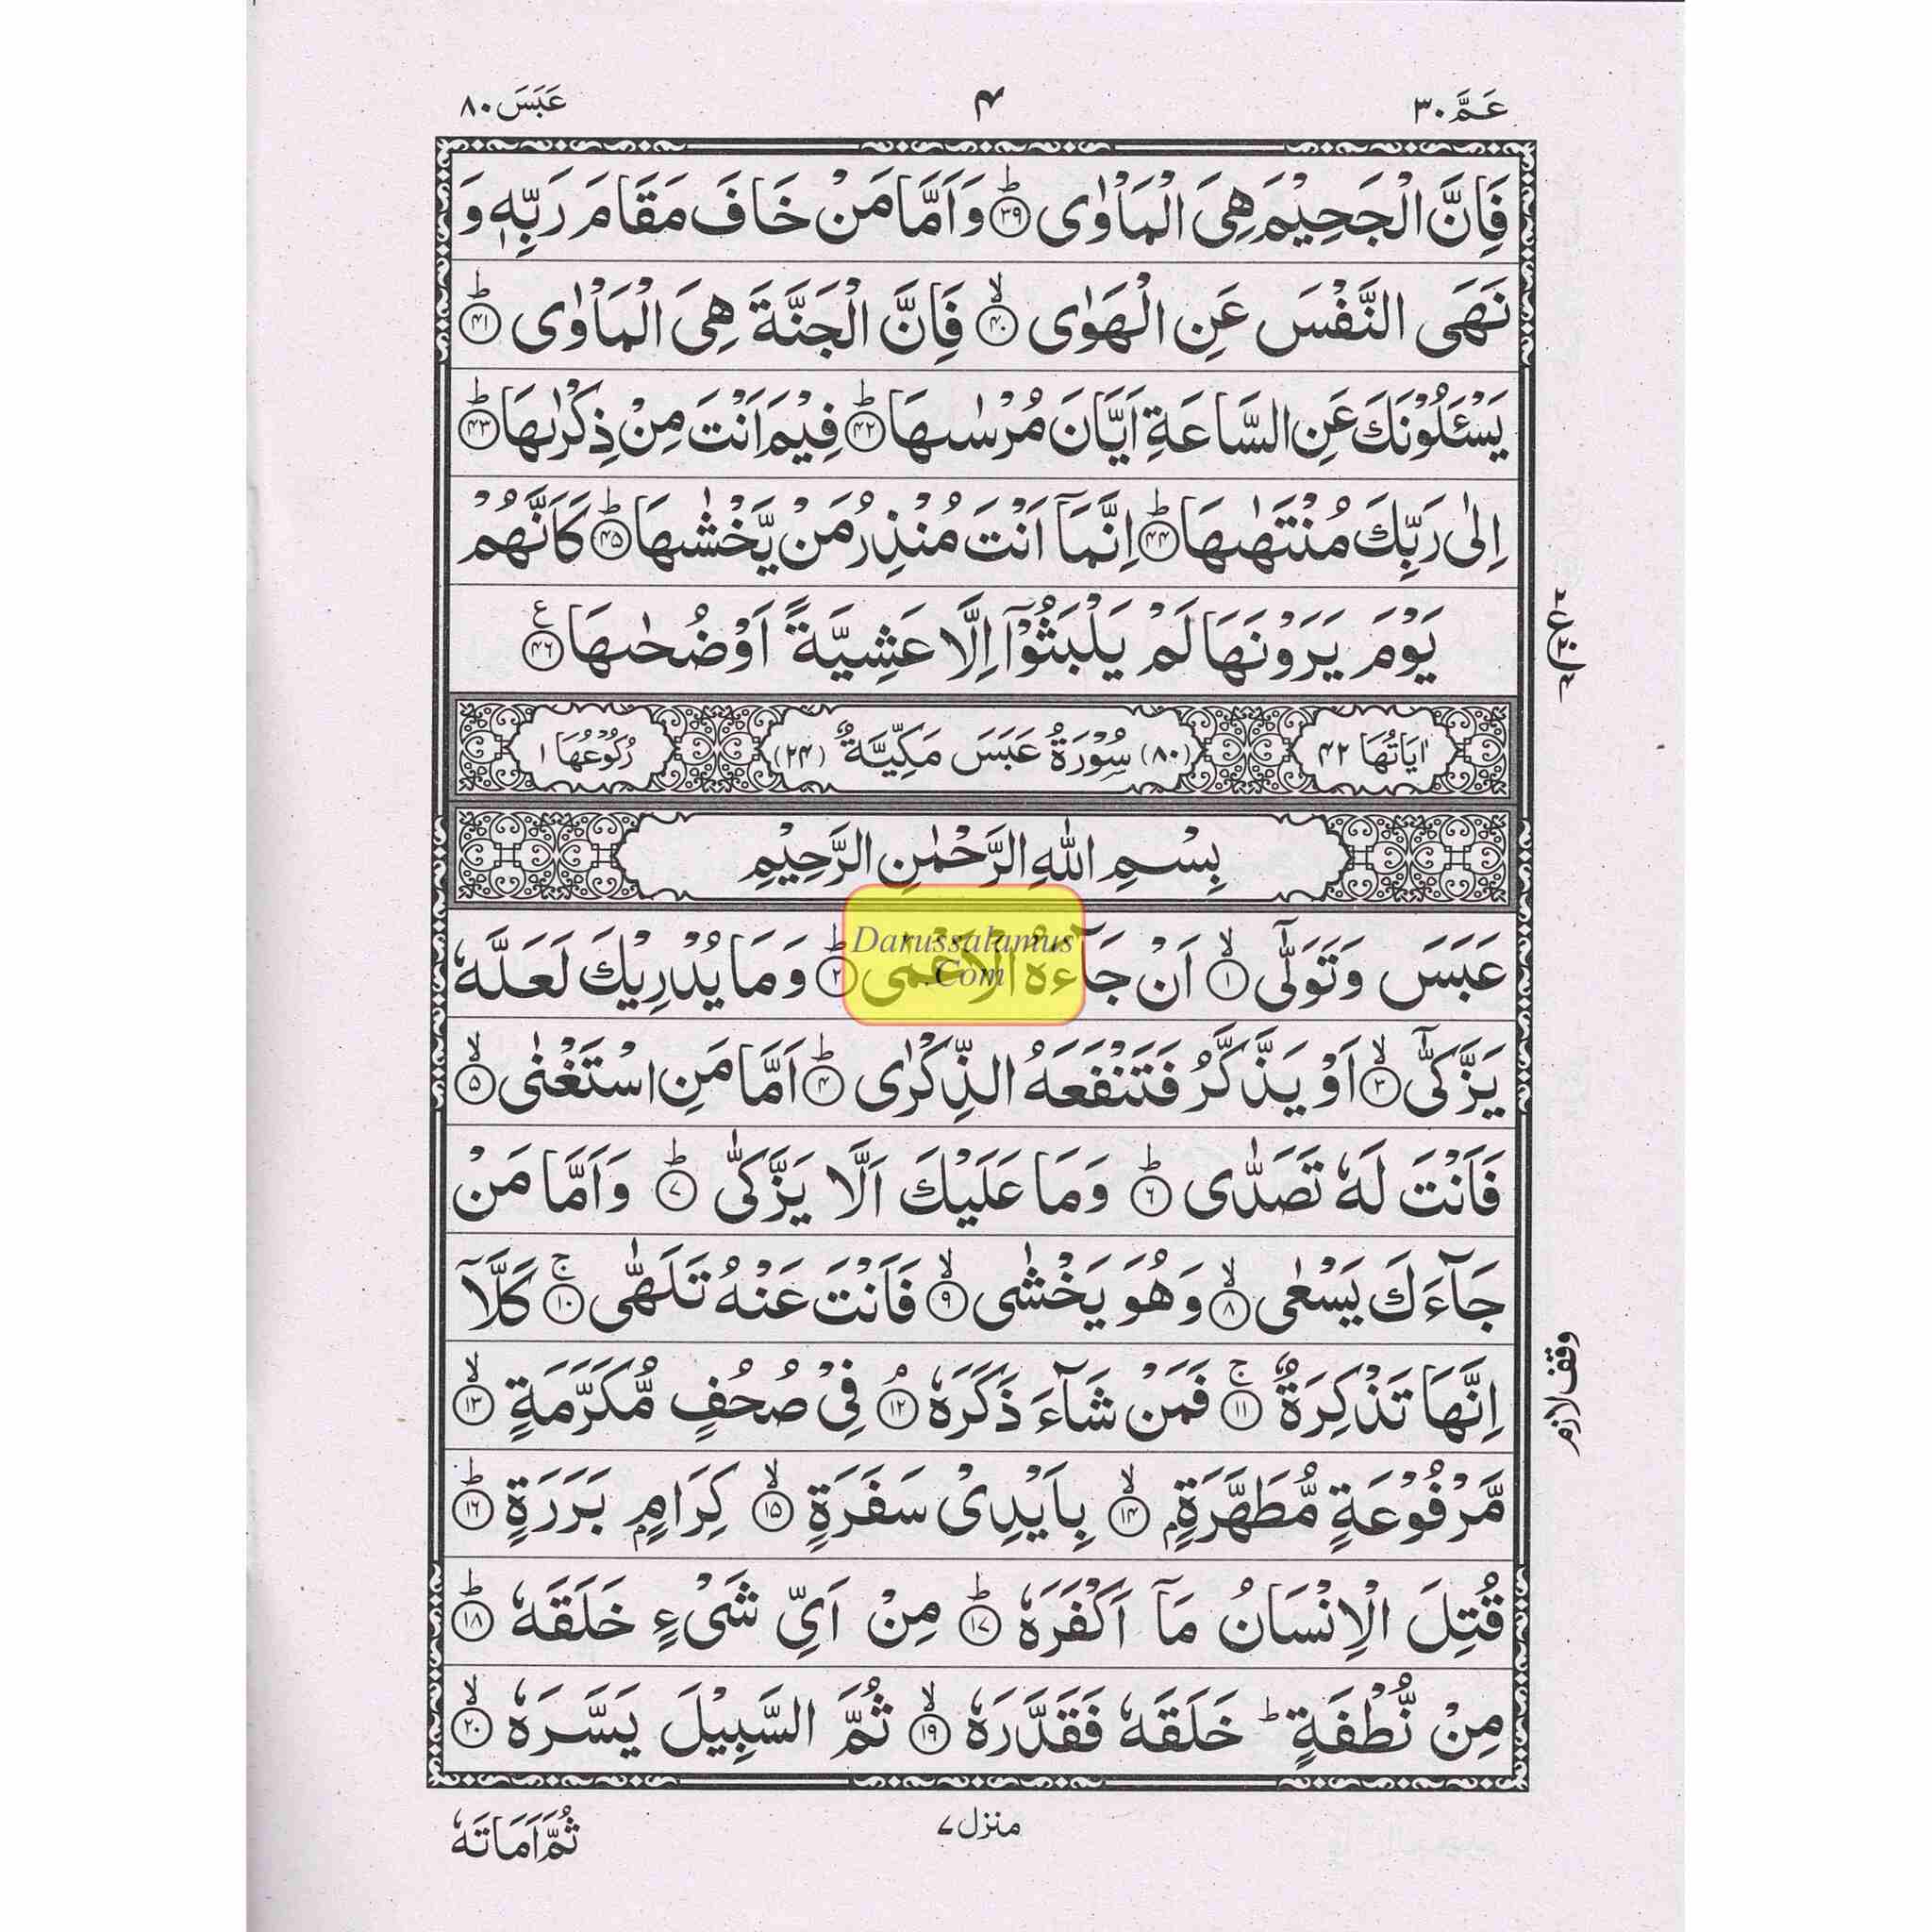 عَمَّ ٣٠
۴
عَبَسَ ٨٠
فَاِنَّ الْجَحِيْمَ هِيَ الْمَاْوٰى ؕ﴿۳۹﴾ وَاَمَّا مَنْ خَافَ مَقَامَ رَبِّهٖ وَ
نَهَى النَّفْسَ عَنِ الْهَوٰى ۙ﴿۴۰﴾ فَاِنَّ الْجَنَّةَ هِيَ الْمَاْوٰى ؕ﴿۴۱﴾
يَسْـَٔلُوْنَكَ عَنِ السَّاعَةِ اَيَّانَ مُرْسٰىهَا ؕ﴿۴۲﴾ فِيْمَ اَنْتَ مِنْ ذِكْرٰىهَا ؕ﴿۴۳﴾
اِلٰى رَبِّكَ مُنْتَهٰىهَا ؕ﴿۴۴﴾ اِنَّمَاۤ اَنْتَ مُنْذِرُ مَنْ يَّخْشٰىهَا ؕ﴿۴۵﴾ كَاَنَّهُمْ
يَوْمَ يَرَوْنَهَا لَمْ يَلْبَثُوْۤا اِلَّا عَشِيَّةً اَوْ ضُحٰىهَا ﴿۴۶﴾ ع
اٰيَاتُهَا ۴۲
(٨٠) سُوْرَةُ عَبَسَ مَكِّيَّةٌ (۲۴)
رُكُوْعُهَا ١
بِسْمِ اللّٰهِ الرَّحْمٰنِ الرَّحِيْمِ
عَبَسَ وَتَوَلّٰۤى ۙ﴿۱﴾ اَنْ جَآءَهُ الْاَعْمٰى ؕ﴿۲﴾ وَمَا يُدْرِيْكَ لَعَلَّهٗ
Darussalamus
.Com
يَزَّكّٰۤى ۙ﴿۳﴾ اَوْ يَذَّكَّرُ فَتَنْفَعَهُ الذِّكْرٰى ؕ﴿۴﴾ اَمَّا مَنِ اسْتَغْنٰى ۙ﴿۵﴾
فَاَنْتَ لَهٗ تَصَدّٰى ؕ﴿۶﴾ وَمَا عَلَيْكَ اَلَّا يَزَّكّٰى ؕ﴿۷﴾ وَاَمَّا مَنْ
جَآءَكَ يَسْعٰى ۙ﴿۸﴾ وَهُوَ يَخْشٰى ۙ﴿۹﴾ فَاَنْتَ عَنْهُ تَلَهّٰى ۚ﴿۱۰﴾ كَلَّاۤ
اِنَّهَا تَذْكِرَةٌ ۚ﴿۱۱﴾ فَمَنْ شَآءَ ذَكَرَهٗ ۘ﴿۱۲﴾ فِيْ صُحُفٍ مُّكَرَّمَةٍ ۙ﴿۱۳﴾
مَّرْفُوْعَةٍ مُّطَهَّرَةٍۭ ۙ﴿۱۴﴾ بِاَيْدِيْ سَفَرَةٍ ۙ﴿۱۵﴾ كِرَامٍۭ بَرَرَةٍ ؕ﴿۱۶﴾
قُتِلَ الْاِنْسَانُ مَاۤ اَكْفَرَهٗ ؕ﴿۱۷﴾ مِنْ اَيِّ شَيْءٍ خَلَقَهٗ ؕ﴿۱۸﴾
مِنْ نُّطْفَةٍ ؕ خَلَقَهٗ فَقَدَّرَهٗ ۙ﴿۱۹﴾ ثُمَّ السَّبِيْلَ يَسَّرَهٗ ۙ﴿۲۰﴾
وقف لازم
منزل ٧
ثُمَّ اَمَاتَهٗ